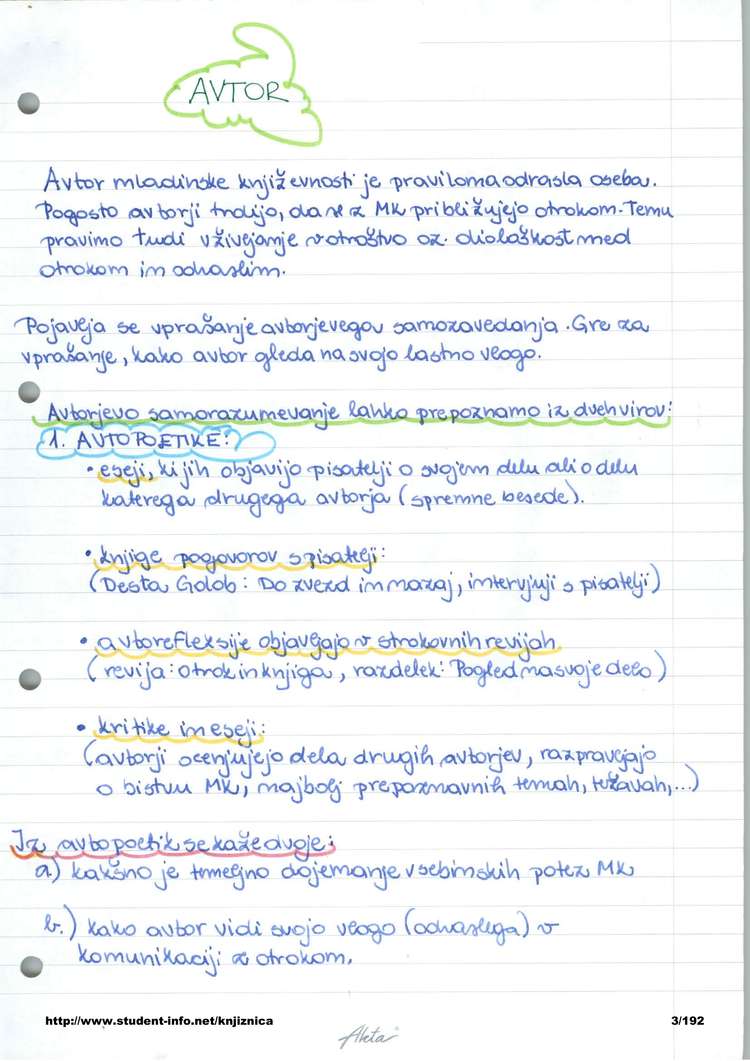 AVTOR
Avtor mladinske književnosti je praviloma odrasla oseba.
Pogosto avtorji trdijo, da se z MK približujejo otrokom. Temu
pravimo tudi vživljanje v otroštvo oz. dialoškost med
otrokom in odraslim.
Pojavlja se vprašanje avtorjevega samozavedanja. Gre za
vprašanje, kako avtor gleda na svojo lastno vlogo.
Avtorjevo samorazumevanje lahko prepoznamo iz dveh virov:
1. AVTOPOETIKE:
• eseji, ki jih objavijo pisatelji o svojem delu ali o delu
katerega drugega avtorja (spremne besede).
• knjige pogovorov s pisatelji:
(Desta Golob: Do zvezd in nazaj, intervjuji s pisatelji)
• avtorefleksije objavljajo v strokovnih revijah
(revija: Otrok in knjiga, razdelek: Pogled na svoje delo)
• kritike in eseji:
(avtorji ocenjujejo dela drugih avtorjev, razpravljajo
o bistvu MK, najbolj prepoznavnih temah, težavah,...)
Iz avtopoetik se kaže dvoje:
a.) kakšno je temeljno dojemanje vsebinskih potez MK
b.) kako avtor vidi svojo vlogo (odraslega) v
komunikaciji z otrokom.
http://www.student-info.net/knjiznica
3/192